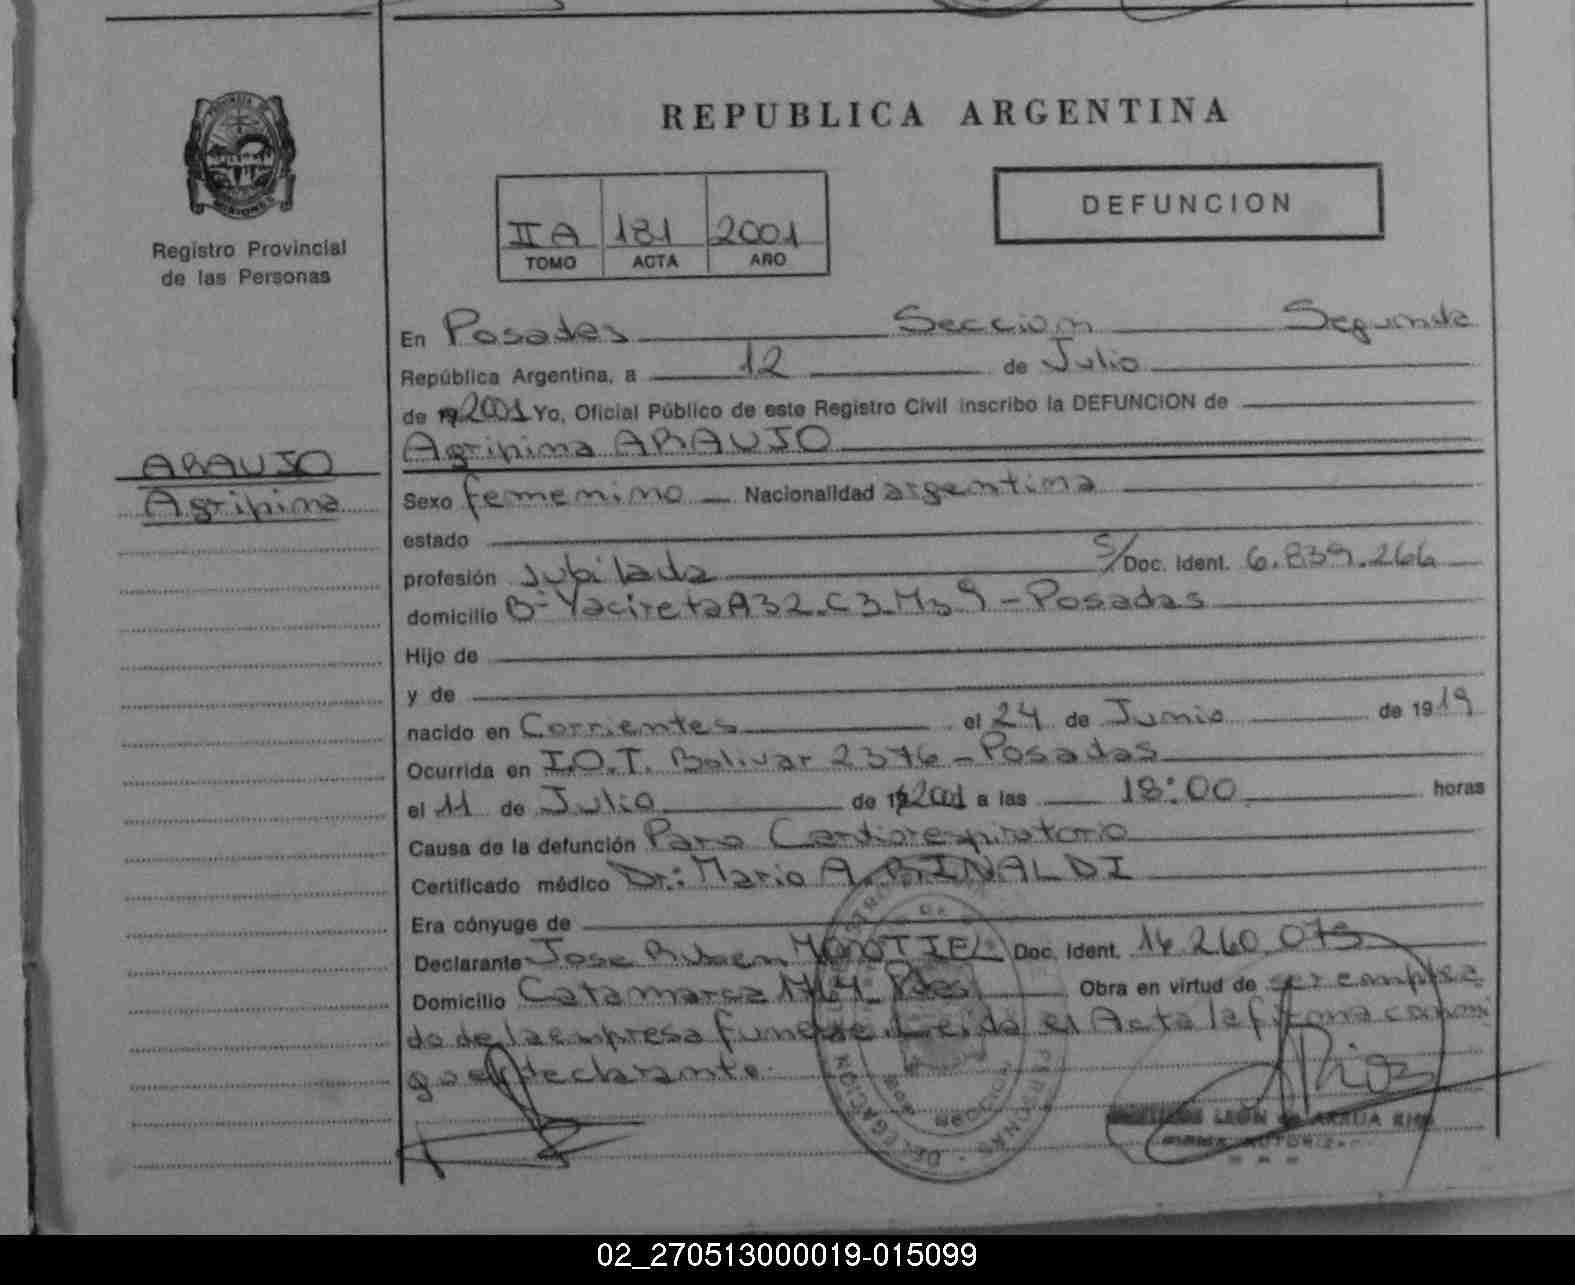 REPUBLICA ARGENTINA
PROVINCIA DE
MISIONES
Registro Provincial
de las Personas
DEFUNCION
II A 181 2001
TOMO ACTA AÑO
En Posadas Seccion Segunda
República Argentina, a 12 de Julio
de 192001 Yo, Oficial Público de este Registro Civil inscribo la DEFUNCION de
Agripina ARAUJO
ARAUJO
Agripina
Sexo femenino Nacionalidad argentina
estado
profesión Jubilada S/Doc. Ident. 6.839.266
domicilio B- Yacireta A32.C3.M39 - Posadas
Hijo de
y de
nacido en Corrientes el 24 de Junio de 1919
Ocurrida en I.O.T. Bolivar 2376 - Posadas
el 11 de Julio de 192001 a las 18:00 horas
Causa de la defunción Paro Cardiorespiratorio
Certificado médico Dr: Mario A. RINALDI
Era cónyuge de
Declarante Jose Ruben Doc. Ident. 14.260.073
Domicilio Catamarca Pdas Obra en virtud de ser emplea
do de la empresa funebre. Leida el Acta la firma conmi
go el declarante.
Rios
LEON
DELEGACION
PERSONAS
02_270513000019-015099